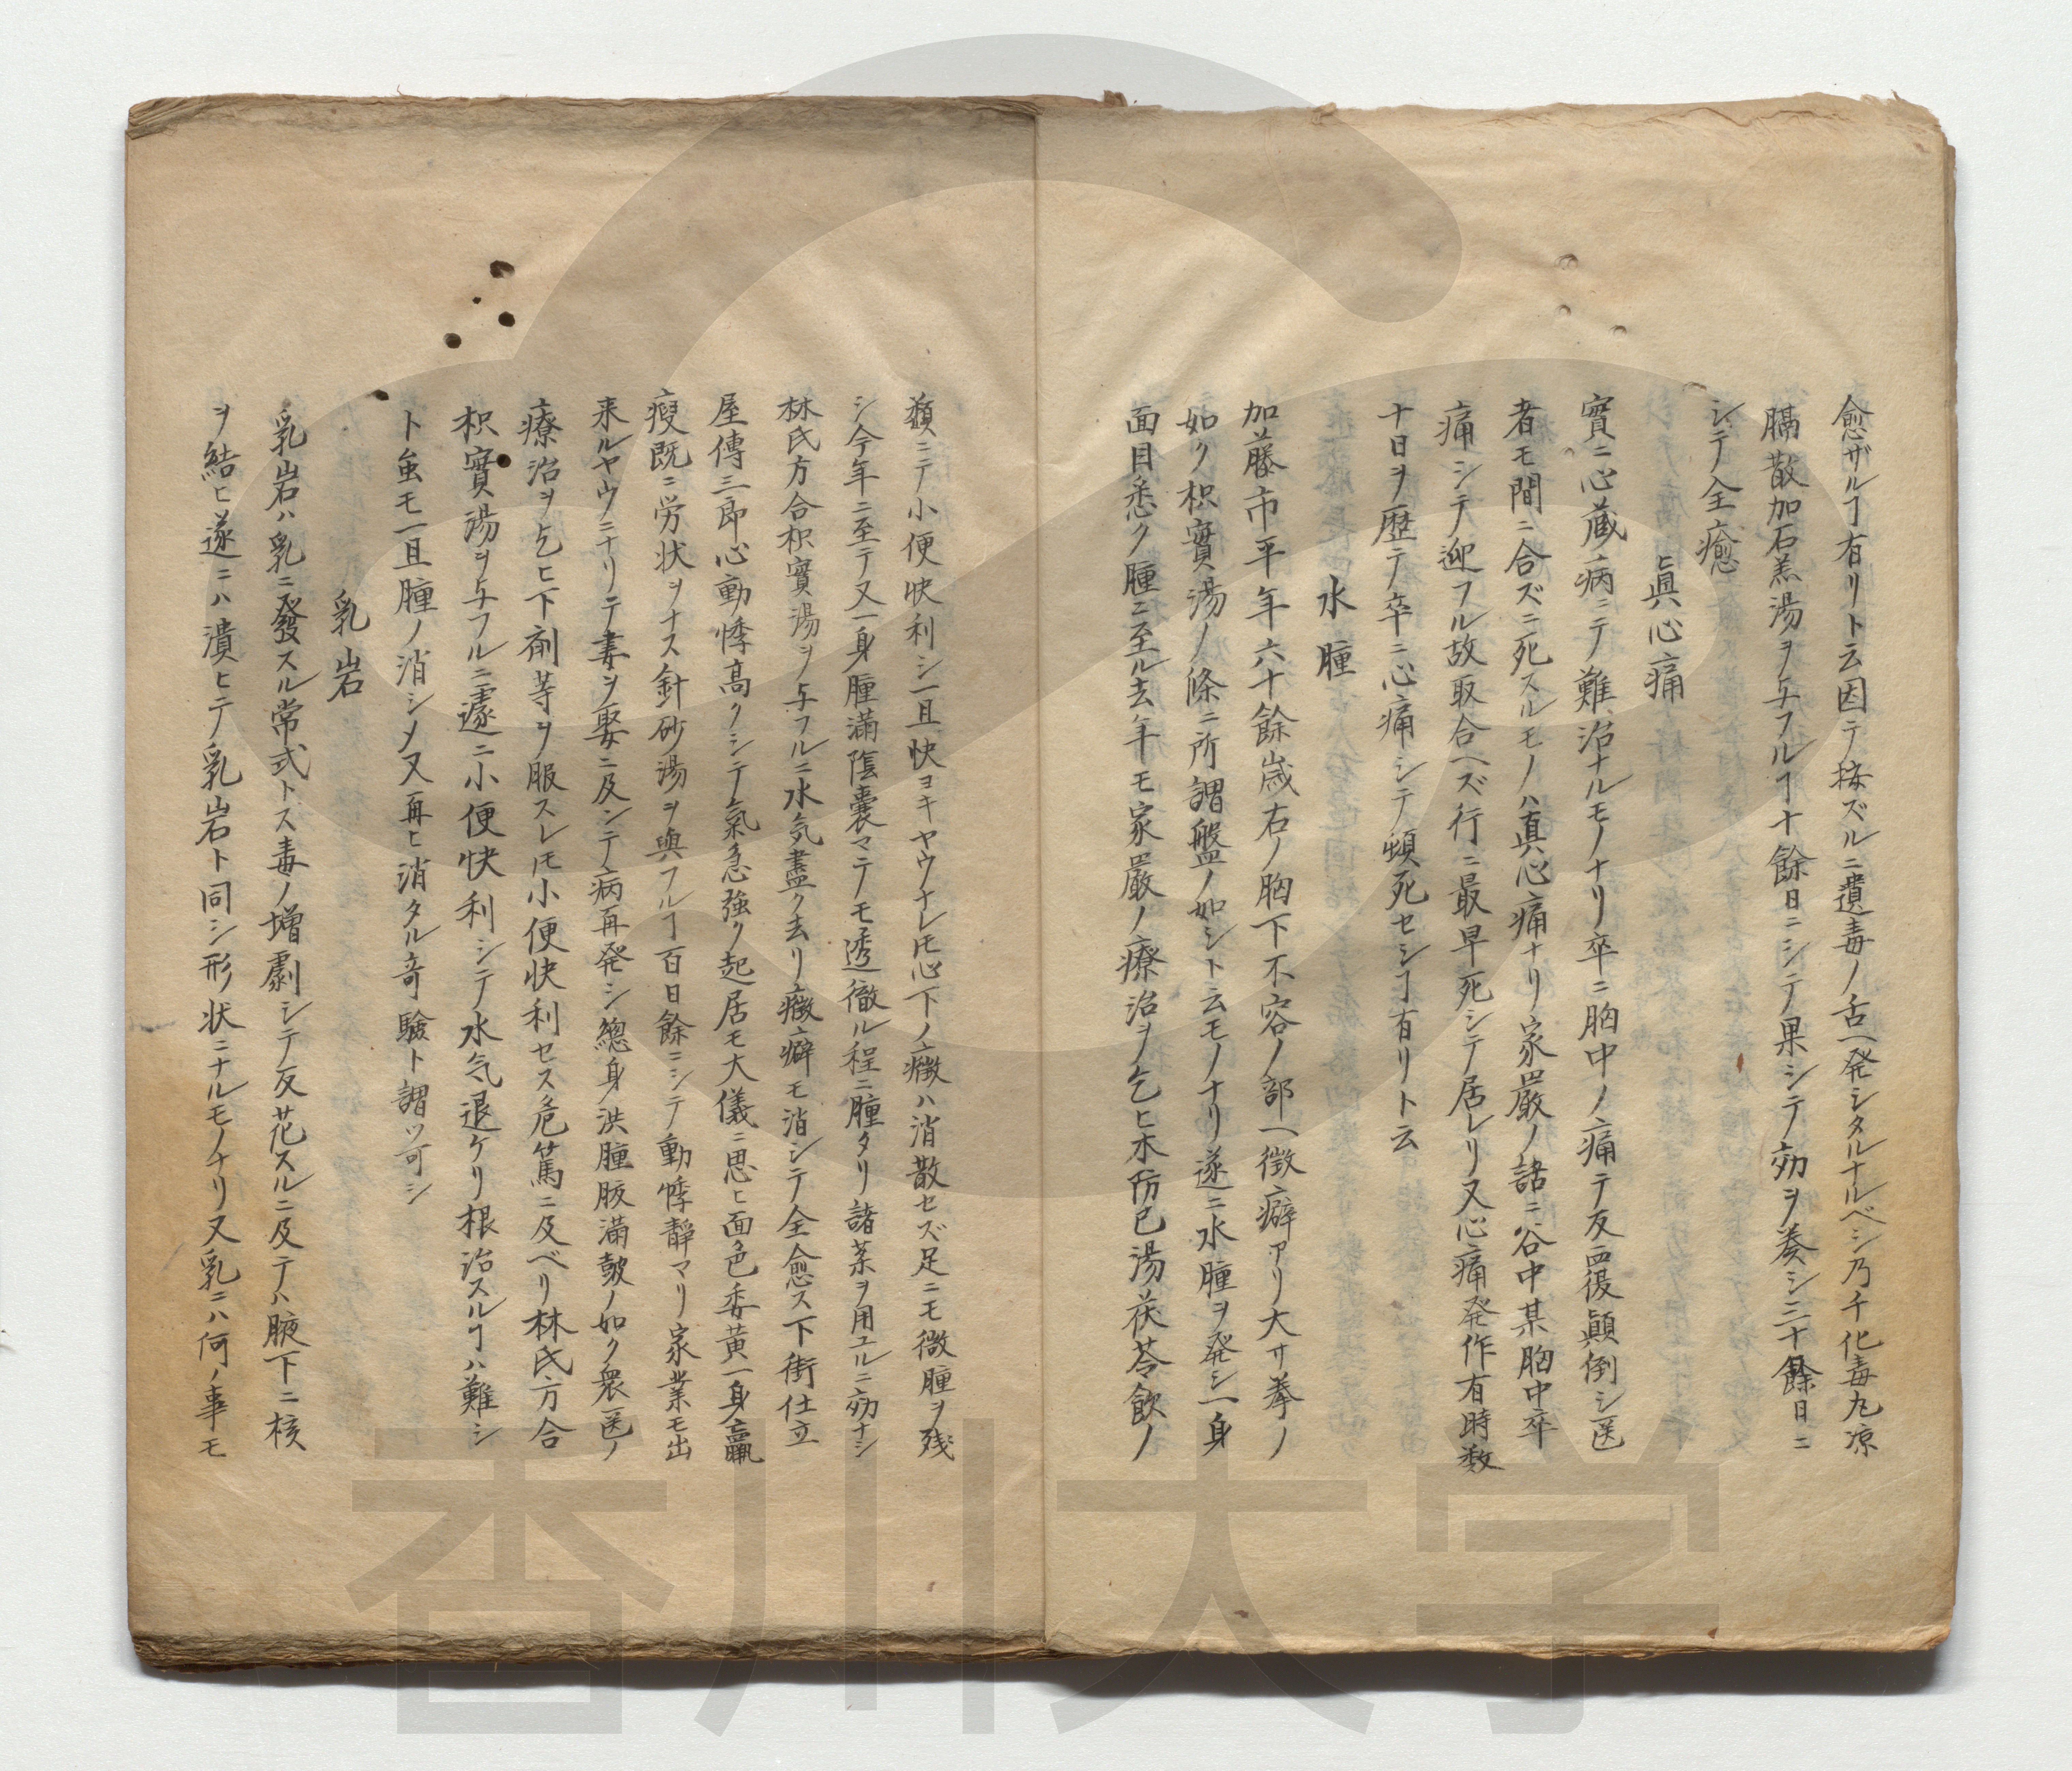 愈ザルヿ有リト云因テ按ズルニ遺毒ノ舌ヘ発シタルナルベシ乃チ化毒丸凉
膈散加石羔湯ヲ与フルヿ十餘日ニシテ果シテ効ヲ奏シ三十餘日ニ
シテ全癒
眞心痛
實ニ心蔵ノ病ニテ難治ナルモノナリ卒ニ胸中ノ痛テ反覆顛倒シ医
者モ間ニ合ズニ死スルモノハ真心痛ナリ家嚴ノ話ニ谷中某胸中卒
痛シテ迎フル故取合ヘズ行ニ最早死シテ居レリ又心痛発作有時数
十日ヲ歴テ卒ニ心痛シテ頓死セシヿ有リト云
水腫
加藤市平年六十餘歳右ノ胸下不容ノ部ヘ徴癖アリ大サ拳ノ
如ク枳實湯ノ條ニ所謂盤ノ如シト云モノナリ遂ニ水腫ヲ発シ一身
面目悉ク腫ニ至ル去年モ家嚴ノ療治ヲ乞ヒ木防已湯茯苓飲ノ
類ニテ小便快利シ一旦快ヨキヤウナレ𪜈心下ノ癥ハ消散セズ足ニモ微腫ヲ残
シ今年ニ至テ又一身腫満陰嚢マテノモ透徹ル程ニ腫タリ諸薬ヲ用ユルニ効ナシ
林氏方合枳實湯ヲ与フルニ水気盡ク去リ癥癖モ消シテ全愈ス下街仕立
屋傳三郎心動悸高クシテ氣急強ク起居モ大儀ニ思ヒ面色委黄一身羸
痩既ニ労状ヲナス針砂湯ヲ與フルヿ百日餘ニシテ動悸靜マリ家業モ出
来ルヤウニナリテ妻ヲ娶ニ及ンテ病再発シ總身洪腫腹滿皷ノ如ク衆医ノ
療治ヲ乞ヒ下剤等ヲ服スレ𪜈小便快利セス危篤ニ及ベリ林氏方合
枳實湯ヲ与フルニ遽ニ小便快利シテ水気退ケリ根治スルヿハ難シ
ト虽モ一旦腫ノ消シメ又再ヒ消タル竒驗ト謂ツ可シ
乳岩
乳岩ハ乳ニ發スル常式トス毒ノ増劇シテ反花スルニ及テハ腋下ニ核
ヲ結ヒ遂ニハ潰ヒテ乳岩ト同シ形状ニナルモノナリ又乳ニハ何ノ事モ
香川大学